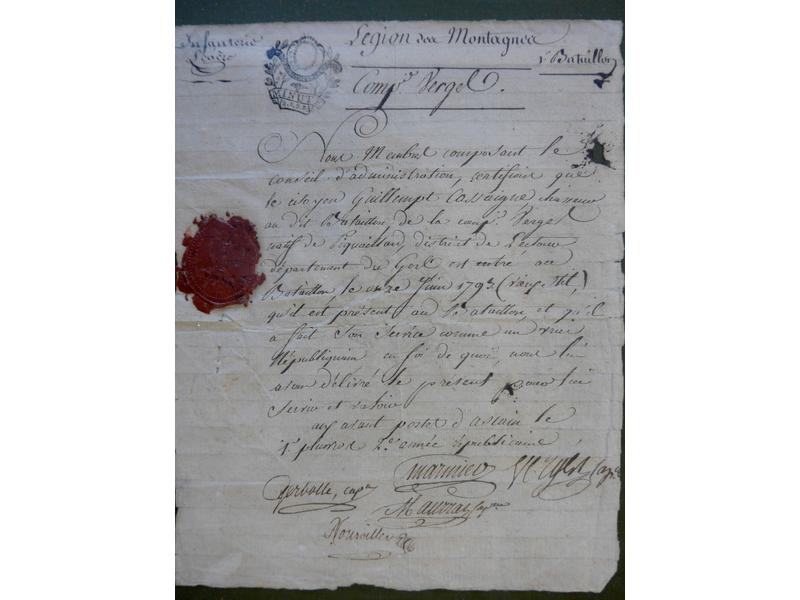 Infanterie
Légère
Legion des Montagnes
1.r Bataillon
Comp.e Vergel.
MINUT
Nous Membres composant le
conseil d'administration, certifions que
le citoyen Guillempt Cassaigne chasseur
au dit Bataillon, de la comp.e Vergel
natif de district de Lectoure
département du Gers est entré au
Bataillon le onze Juin 1793 (vieux stil,)
qu'il est présent au Bataillon, et qu'il
a fait son service comme un vrai
Républiquain en foi de quoi, nous lui
avons délivré le présent pour lui
servir et valoir
aux avant postes d'ascain le
1.r pluviose 2.e année républicaine
marmier
gerbolle, cap.e
Mauvray cap.ne